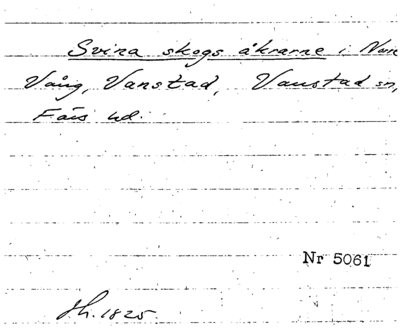 Svina skogs åkrarne i
Vång, Vanstad, Vanstad sn,
Färs hd.
Nr 5061
Sh. 1825.